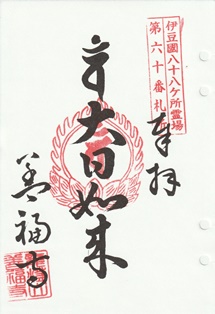 伊豆國八十八ケ所霊場
第六十番札所
奉拝
大日如来
善福寺